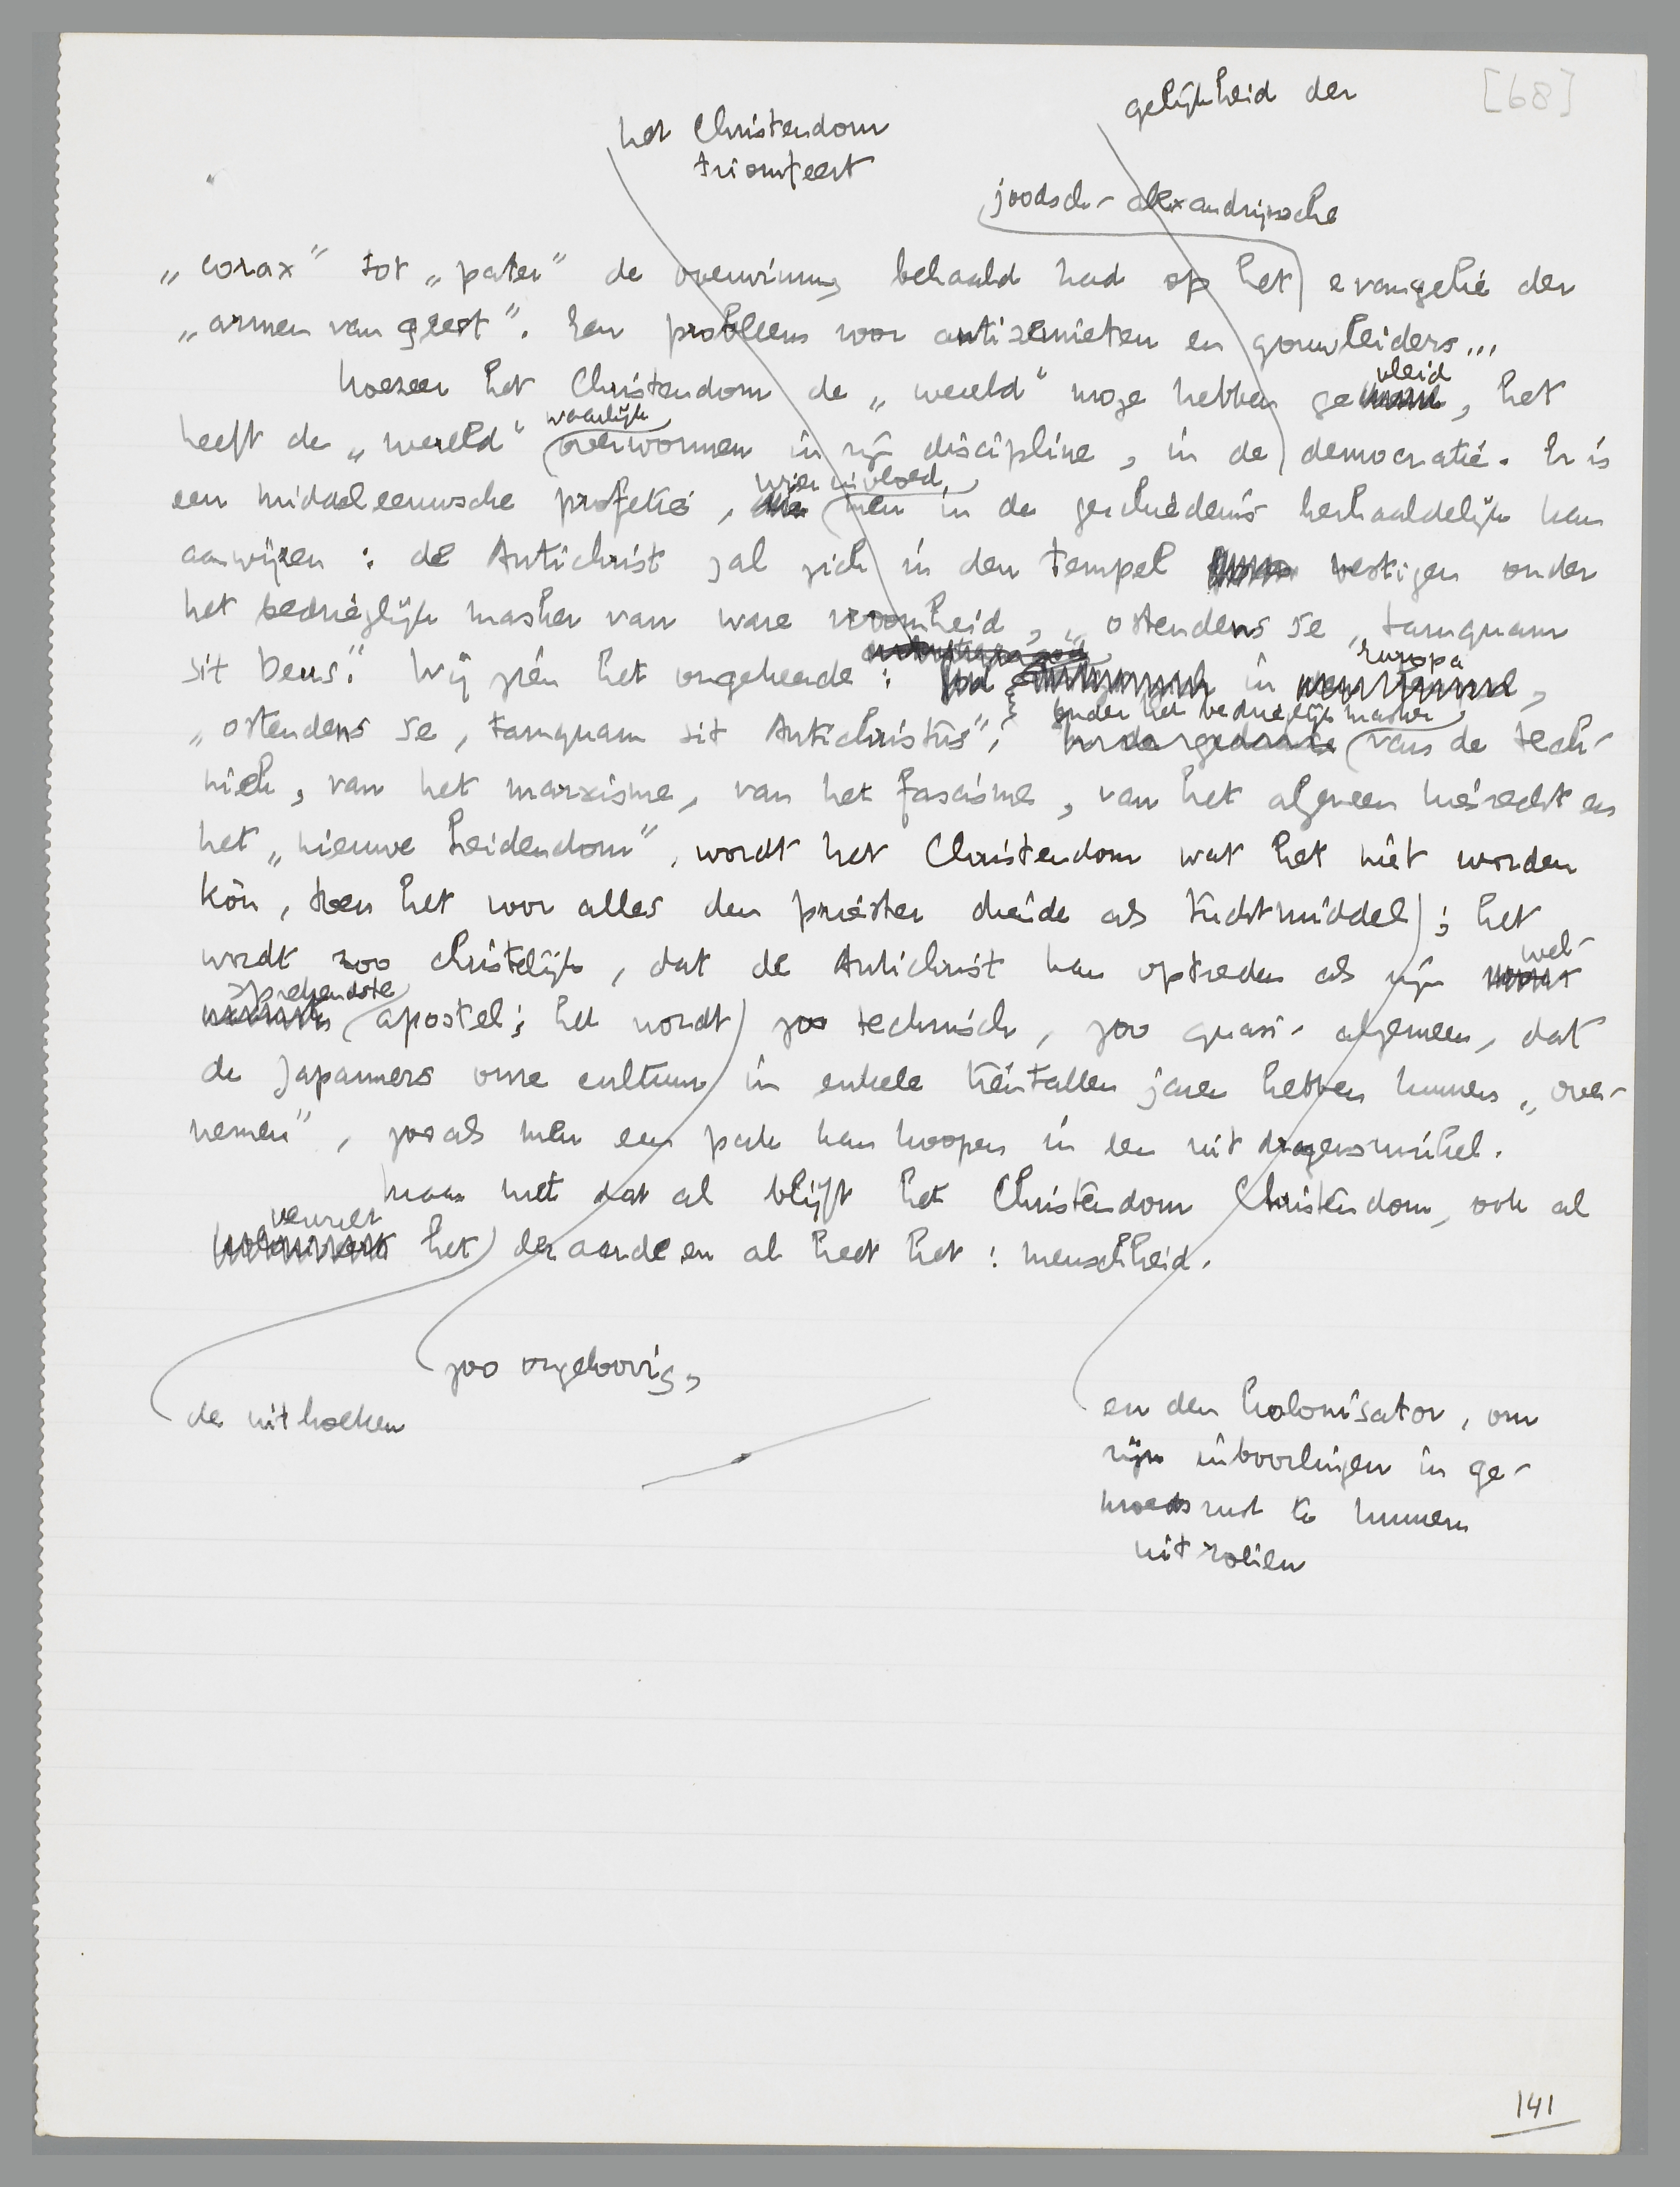 [68]
gelijkheid der
het Christendom
triomfeert
joodsch-alexandrijnsche
„corax” tot „pater” de overwinning behaald had op het evangelie der
„armen van geest”. Een probleem voor antisemieten en gouwleiders...
Hoezeer het Christendom de „wereld” moge hebben ge
vleid
, het
waarlijk
heeft de „wereld” overwonnen in zijn discipline, in de democratie. Er is
wier invloed
een middeleeuwsche profetie, die men in de geschiedenis herhaaldelijk kan
aanwijzen: de Antichrist zal zich in den tempel vestigen onder
het bedriegelijk masker van ware vroomheid, „ostendens se, tamquam
sit Deus”. Wij zien het omgekeerde: God in
Europa
,
onder het bedriegelijk masker
„ostendens se, tamquam sit Antichristus”; in de gedaante van de tech-
niek, van het marxisme, van het fascisme, van het algemeen kiesrecht en
het „nieuwe heidendom”, wordt het Christendom wat het niet worden
kòn, toen het voor alles den priester diende als tuchtmiddel; het
wordt zoo christelijk, dat de Antichrist kan optreden als zijn
wel-
sprekendste
apostel; het wordt zoo technisch, zoo quasi-algemeen, dat
de Japanners onze cultuur in enkele tientallen jaren hebben kunnen „over-
nemen”, zooals men een pak kan koopen in een uitdragerswinkel.
Maar met dat al blijft het Christendom Christendom, ook al
vervult
het der aarde en al heet het: menschheid.
zoo ongeloovig,
de uithoeken
en den kolonisator, om
zijn inboorlingen in ge-
moedsrust te kunnen
uitzuigen
141